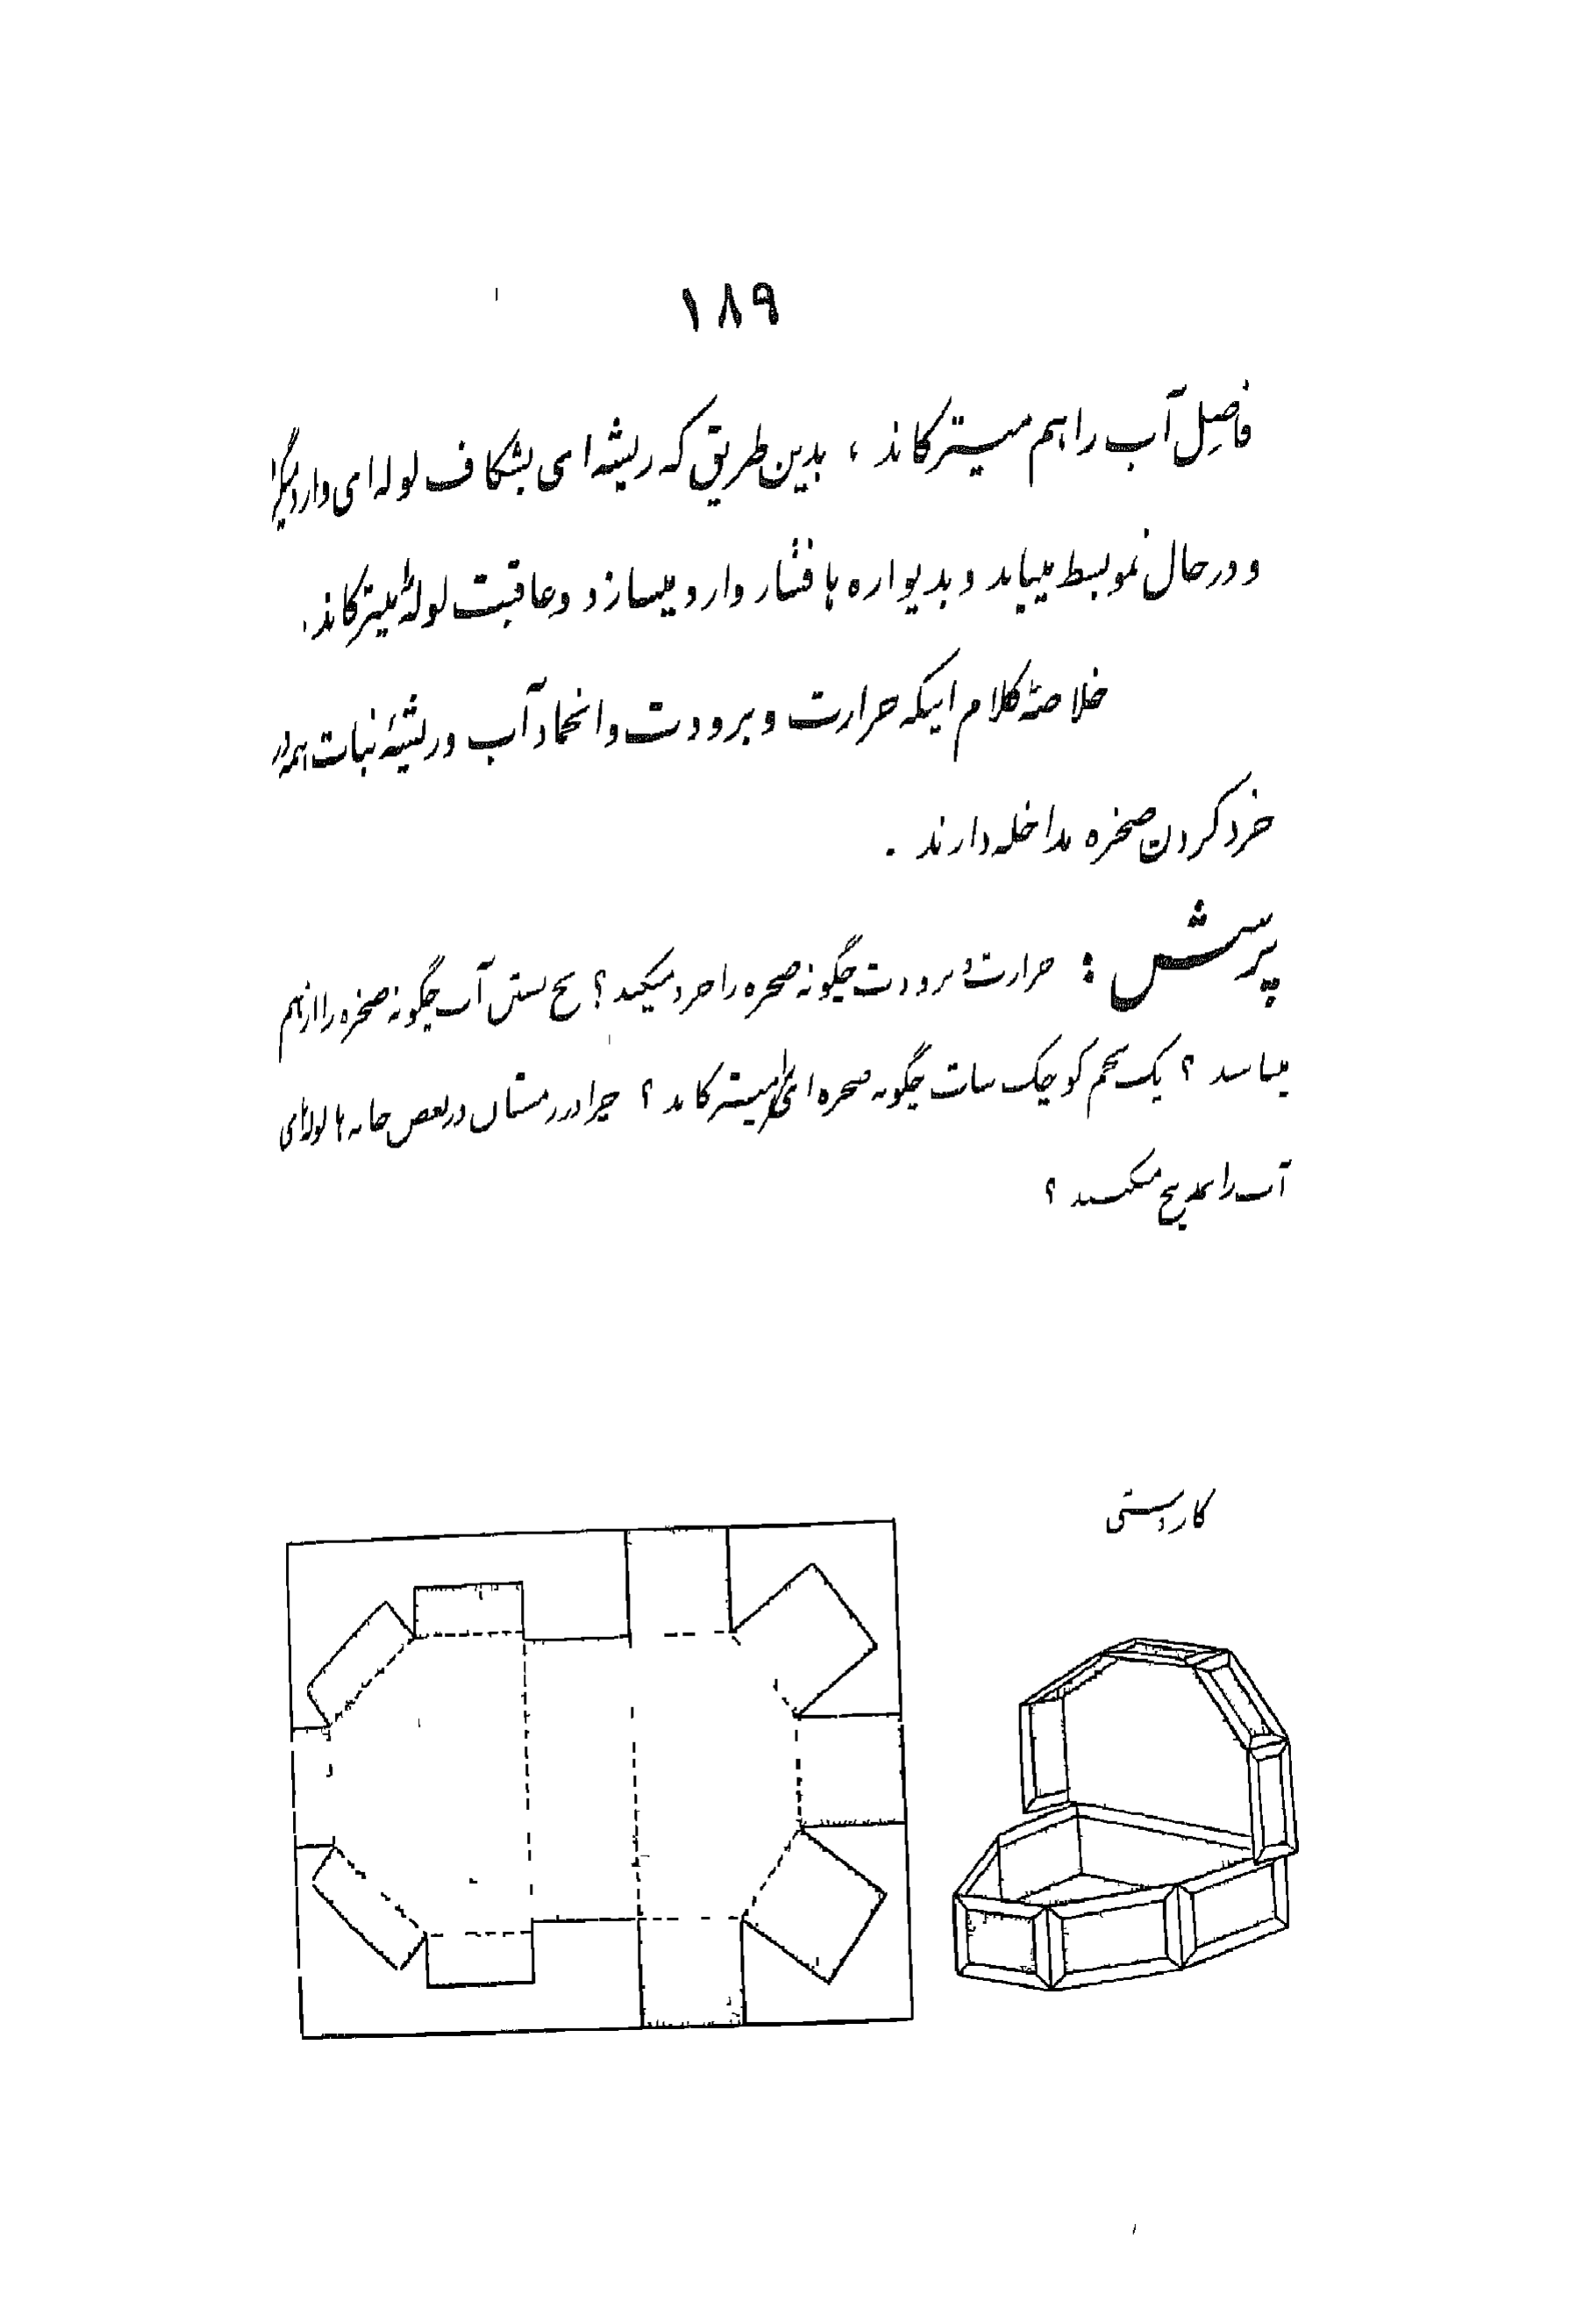 ۱۸۹
فاصل آب را هم میترکاند ، بدین طریق که ریشه ای بشکاف لوله ای وارد میگردد
و در حال نمو بسط مییابد و بدیواره ها فشار وارد میسازد و عاقبت لوله را میترکاند .
خلاصهٔ کلام اینکه حرارت و برودت و انجماد آب و ریشهٔ نبات همه در
خرد کردن صخره مداخله دارند .
پرسش : حرارت و برودت چگونه صخره را خرد میکند ؟ یخ بستن آب چگونه صخره را از هم
میپاشد ؟ یک تخم کوچک نبات چگونه صخره ای را میترکاند ؟ چرا در زمستان در بعض خانه ها لوله‌های
آب را نمد پیچ میکنند ؟
کار دستی